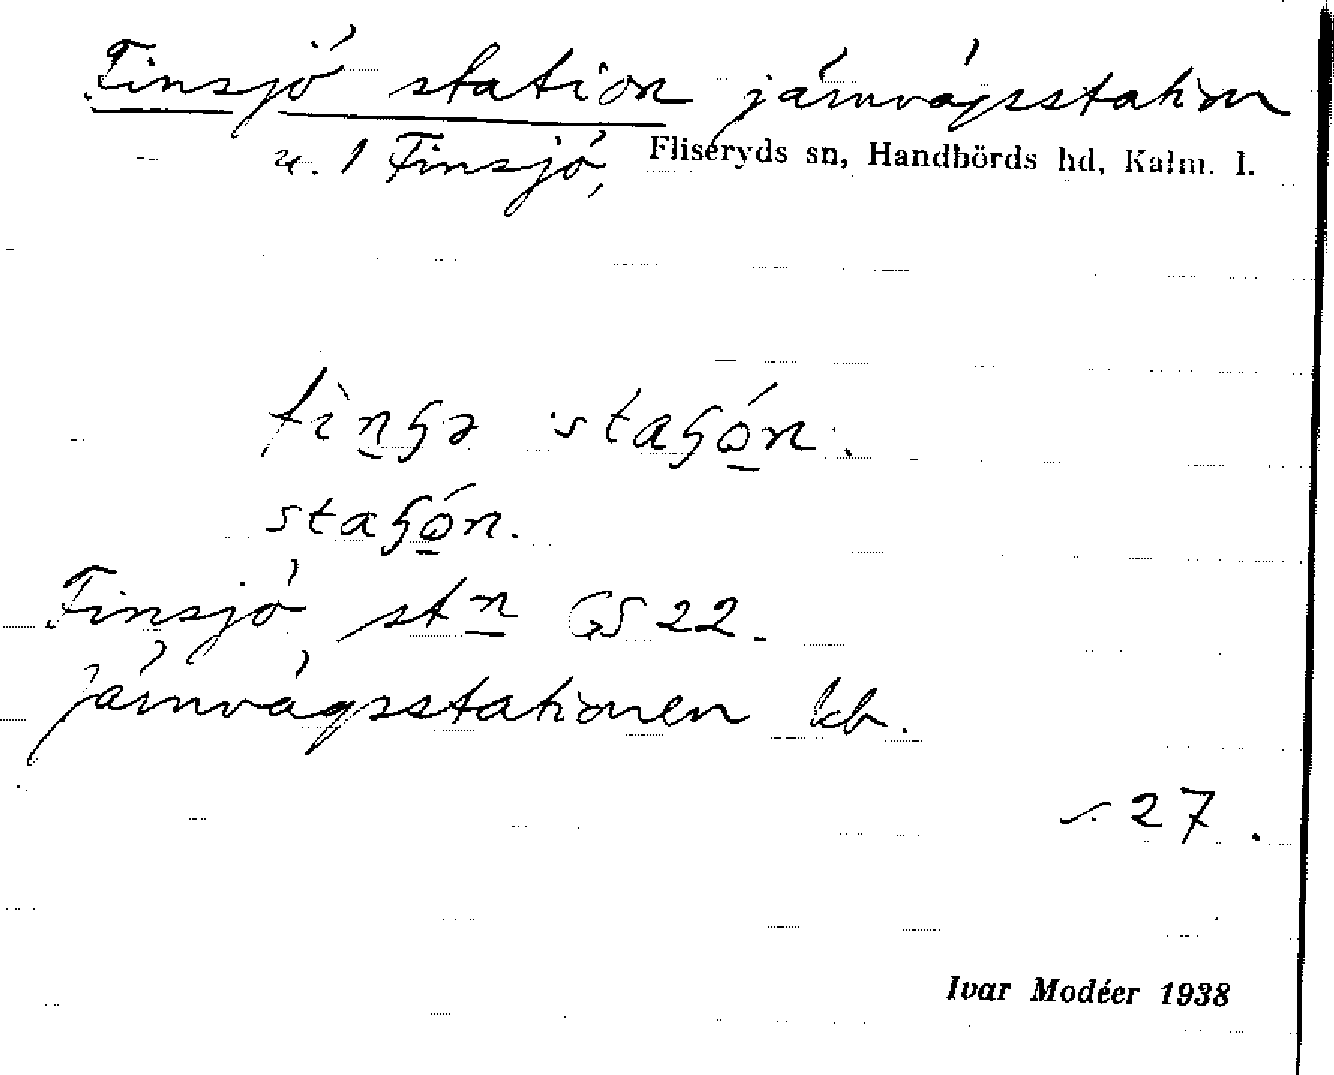 Finsjö station järnvägsstation
u. 1 Finsjö, Fliseryds sn, Handbörds hd, Kalm. l.
Finsjö stn GS 22.
järnvägsstationen kb.
27.
Ivar Modéer 1938